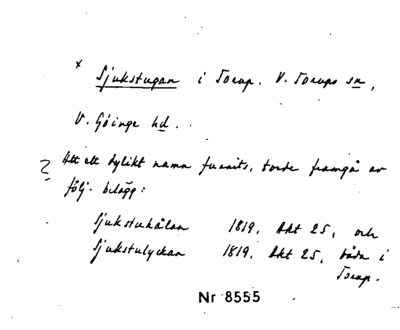 x Sjukstugan i Torup. V. Torups sn,
V. Göinge hd.
? Att ett dylikt namn funnits, torde framgå av
följ. belägg:
Sjukstuhålan 1819. Akt 25, och
Sjukstulyckan 1819. Akt 25, båda i
Torup.
Nr 8555